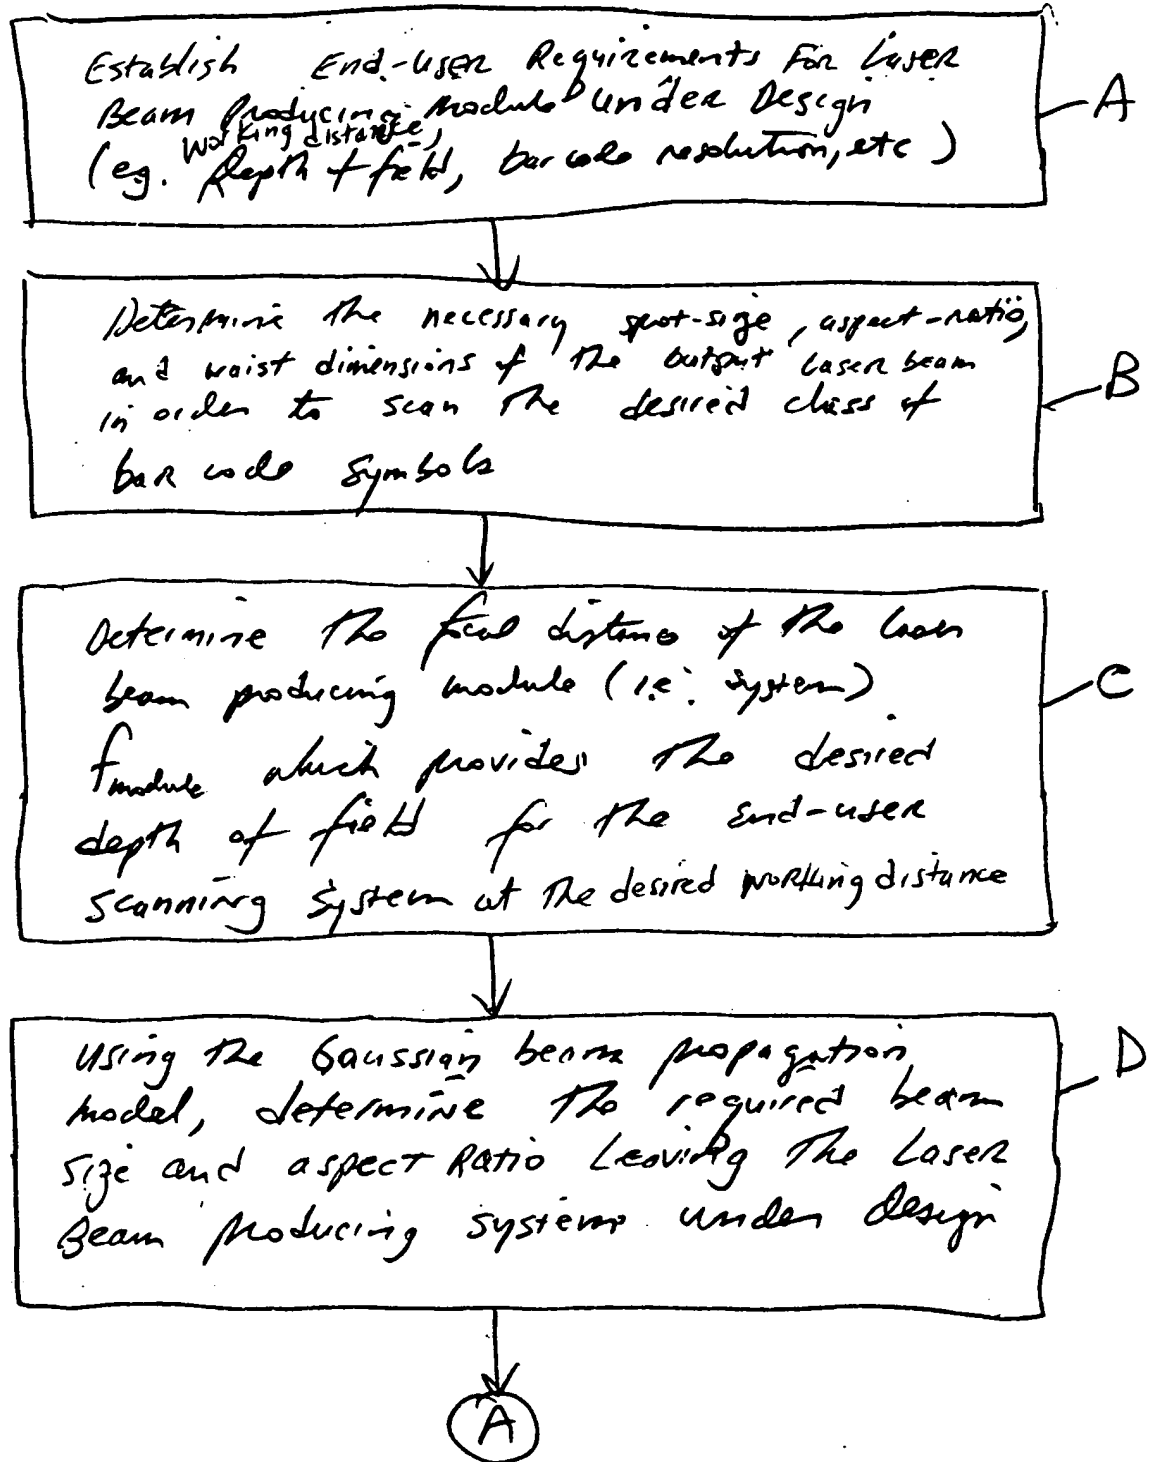 Establish End-User Requirements For Laser
Beam Producing Module Under Design
Working distance,
(eg. Depth of field, bar code resolution, etc)
A
Determine the necessary spot-size, aspect-ratio,
and waist dimensions of the output laser beam
in order to scan the desired class of
bar code symbols
B
Determine the focal distance of the laser
beam producing module (i.e. system)
fmodule which provides the desired
depth of field for the end-user
scanning system at the desired working distance
C
Using the Gaussian beam propagation
model, determine the required beam
size and aspect Ratio Leaving The Laser
Beam producing system under design
D
A